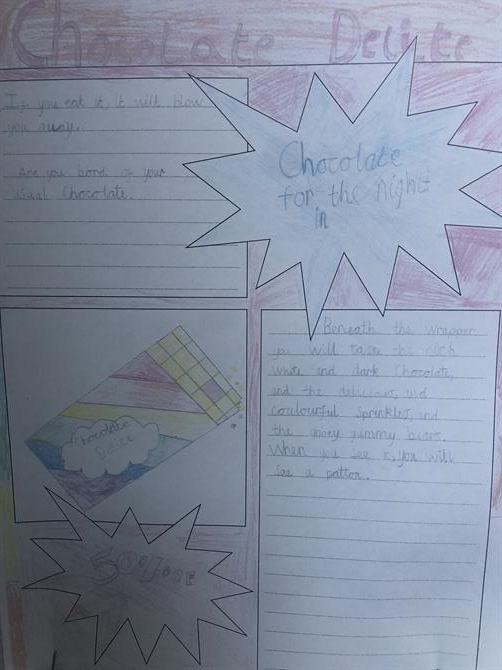 Chocolate Delite
If you eat it, it will blow
you away.
Are you bord of your
usual Chocolate.
Chocolate
for the night
in
Chocolate
Delite
50% OFF
Beneath the wrapper
you will taste the rich
white and dark Chocolate,
and the delicious, and
coulourful Sprinkles, and
the gooey yummy bears.
When you see it, you will
see a patton.